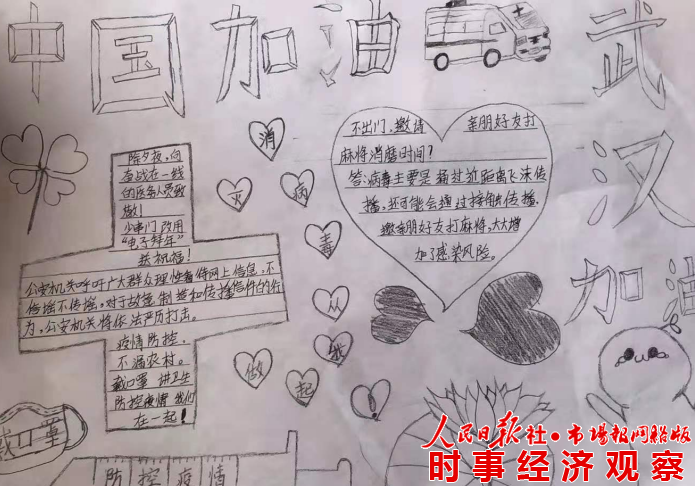 中国加油
武汉加油
消灭病毒从我做起!
除夕夜,向
奋战在一线
的医务人员致
敬!
少串门 改用
"电子拜年"
送祝福!
公安机关呼吁广大群众理性看待网上信息,不
信谣不传谣。对于故意制造和传播信件的行
为,公安机关将依法严厉打击。
疫情防控,
不漏农村。
戴口罩 讲卫生
防控疫情 我们
在一起!
不出门,邀请亲朋好友打
麻将消磨时间?
答:病毒主要是通过近距离飞沫传
播,还可能会通过接触传播,
邀亲朋好友打麻将,大大增
加了感染风险。
戴口罩
防控疫情
人民日报社·市场报网络版
时事经济观察